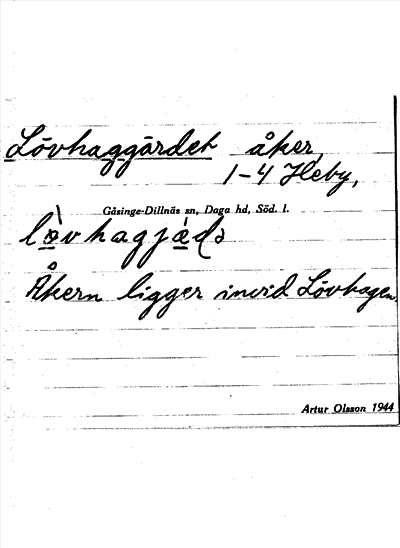 Lövhaggärdet åker,
1-4 Heby,
Gåsinge-Dillnäs sn, Daga hd, Söd. l.
Åkern ligger invid Lövhagen.
Artur Olsson 1944